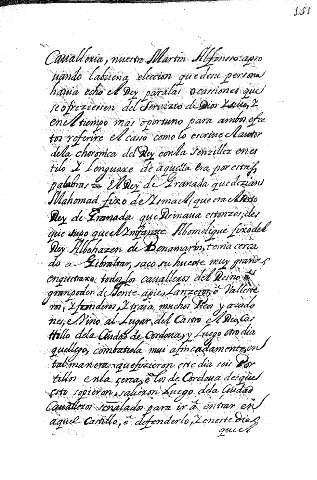 151
Cavalleria, nuestro Martin Alfonso apro
vando la buena eleccion que de su persona
havia echo el Rey para las ocassiones que
se ofreziesen del Servizio de Dios i suio, i
en el tiempo mas oportuno para ambos efec
tos referire el caso como lo escrive el autor
de la choronica del Rey con la senzillez en es
tilo i Lenguaxe de aquella era, por estas
palabras = El Rey de Granada que dezian
Mahomad fixo de Ismael, que era el sexto
Rey de Granada que Reinava estonze, des
que supo que el Infante Abomelique fixo del
Rey Albohazen de Benamarin, tenia cerca
do a Gibraltar, saco su hueste mui grande
en que traxo todos los cavalleros del Reino i
gran poder de gente de pie, Lanzeros i Valleste
ros, i traia muchos
nes, e vino al Lugar del Castro e
tillo de la Ciudad de Cordova, y luego otro dia
que llego, combatiola mui afincadamente, en
tal manera que fizieron este dia seis Por
tillos en la cerca, i los de Cordova desque
esto sopieron, salieron luego de la Ciudad
Cavalleros señalado para ir a entrar en
aquel Castillo, i defenderlo, i en este dia
que el